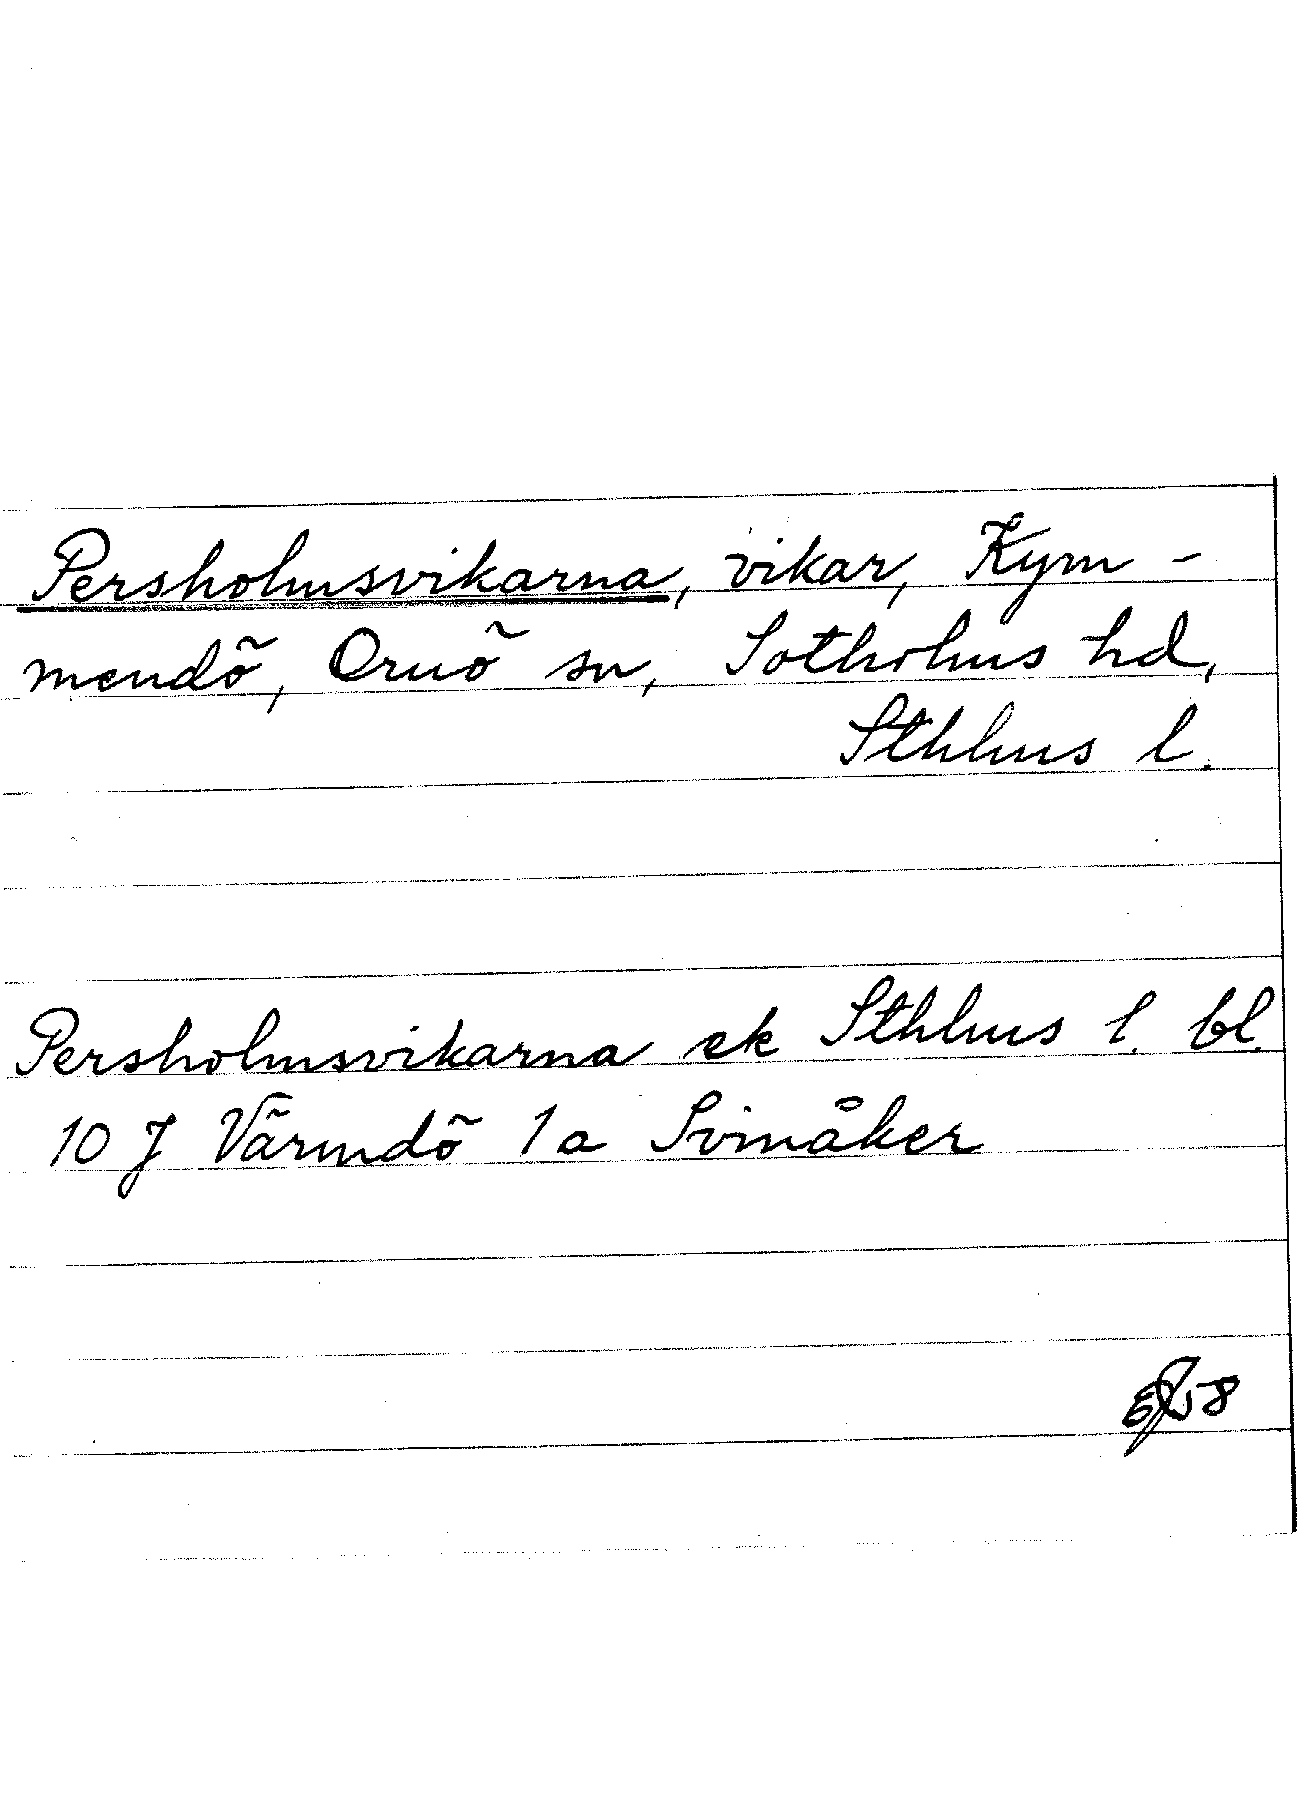 Persholmsvikarna, vikar, Kym-
mendö, Ornö sn, Sotholms hd,
Sthlms l.
Persholmsvikarna ek Sthlms l. bl.
10 J Värmdö 1a Svinåker
58